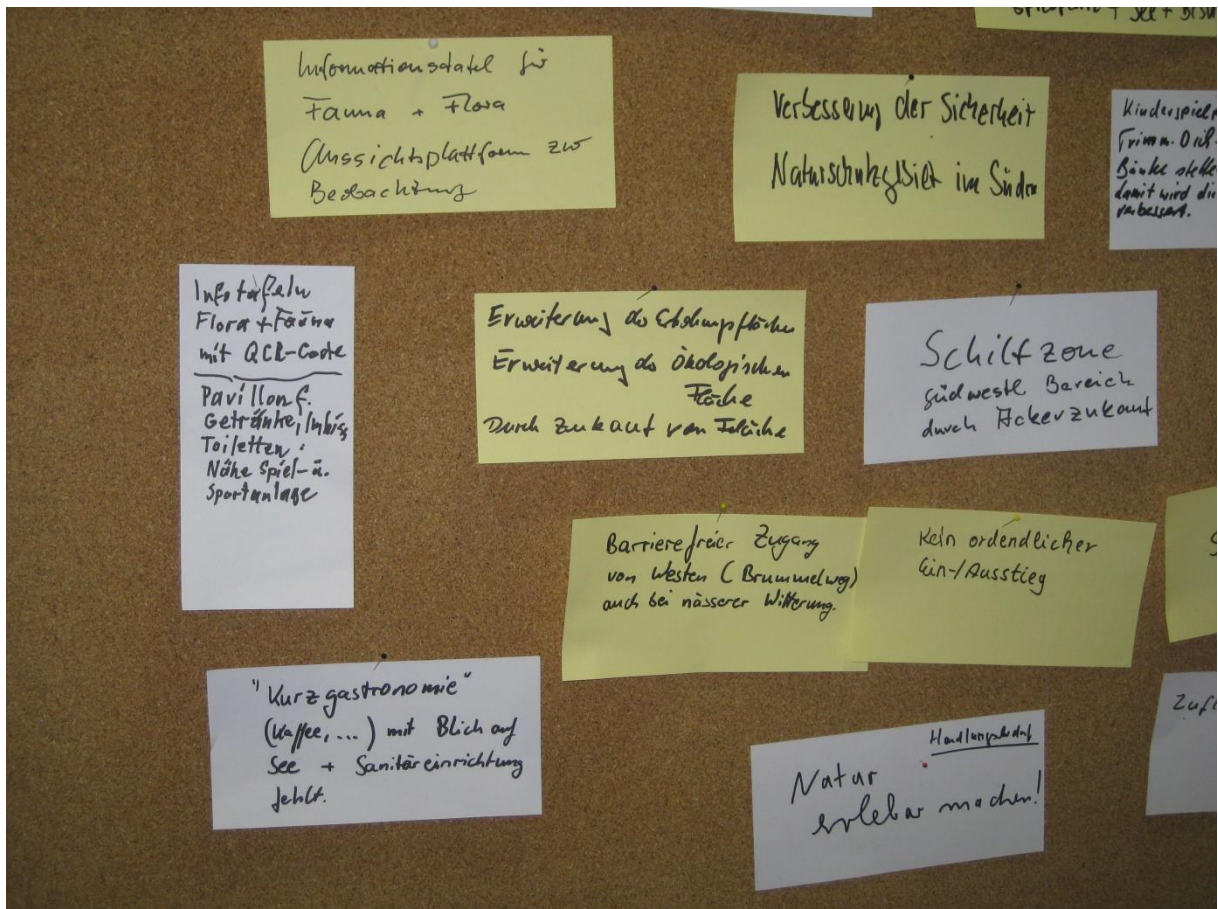 + See +
Informationstafel für
Fauna + Flora
Aussichtsplattform zur
Beobachtung
Verbesserung der Sicherheit
Naturschutzgebiet im Süden
Trimm-Dich-
Bänke
damit wird
verbessert.
Infotafeln
Flora + Fauna
mit QCR-Code
Pavillon f.
Getränke, Imbiss
Toiletten
Nähe Spiel- u.
Sportanlage
Erweiterung der Erholungsfläche
Erweiterung der Ökologischen
Fläche
Durch Zukauf von Fläche
Schilfzone
südwestl Bereich
durch Ackerzukauf
Barrierefreier Zugang
von Westen (Brummelweg)
auch bei nässerer Witterung.
Kein ordendlicher
Ein-/Ausstieg
"Kurzgastronomie"
(Kaffee, ...) mit Blick auf
See + Sanitäreinrichtung
fehlt.
Handlungsbedarf
Natur
erlebar machen!